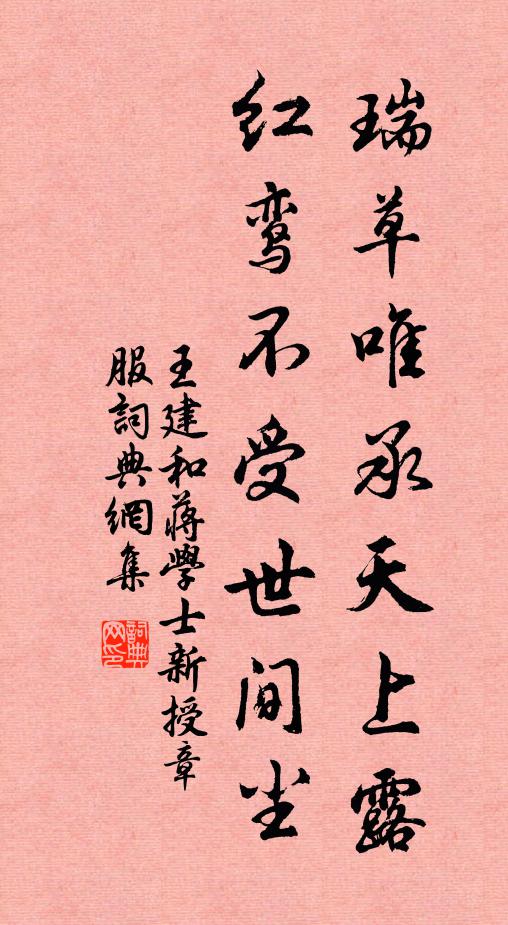 瑞草唯承天上露
红鸾不受世间尘
王建和蔣學士新授章
服詞典網集
詞典网印